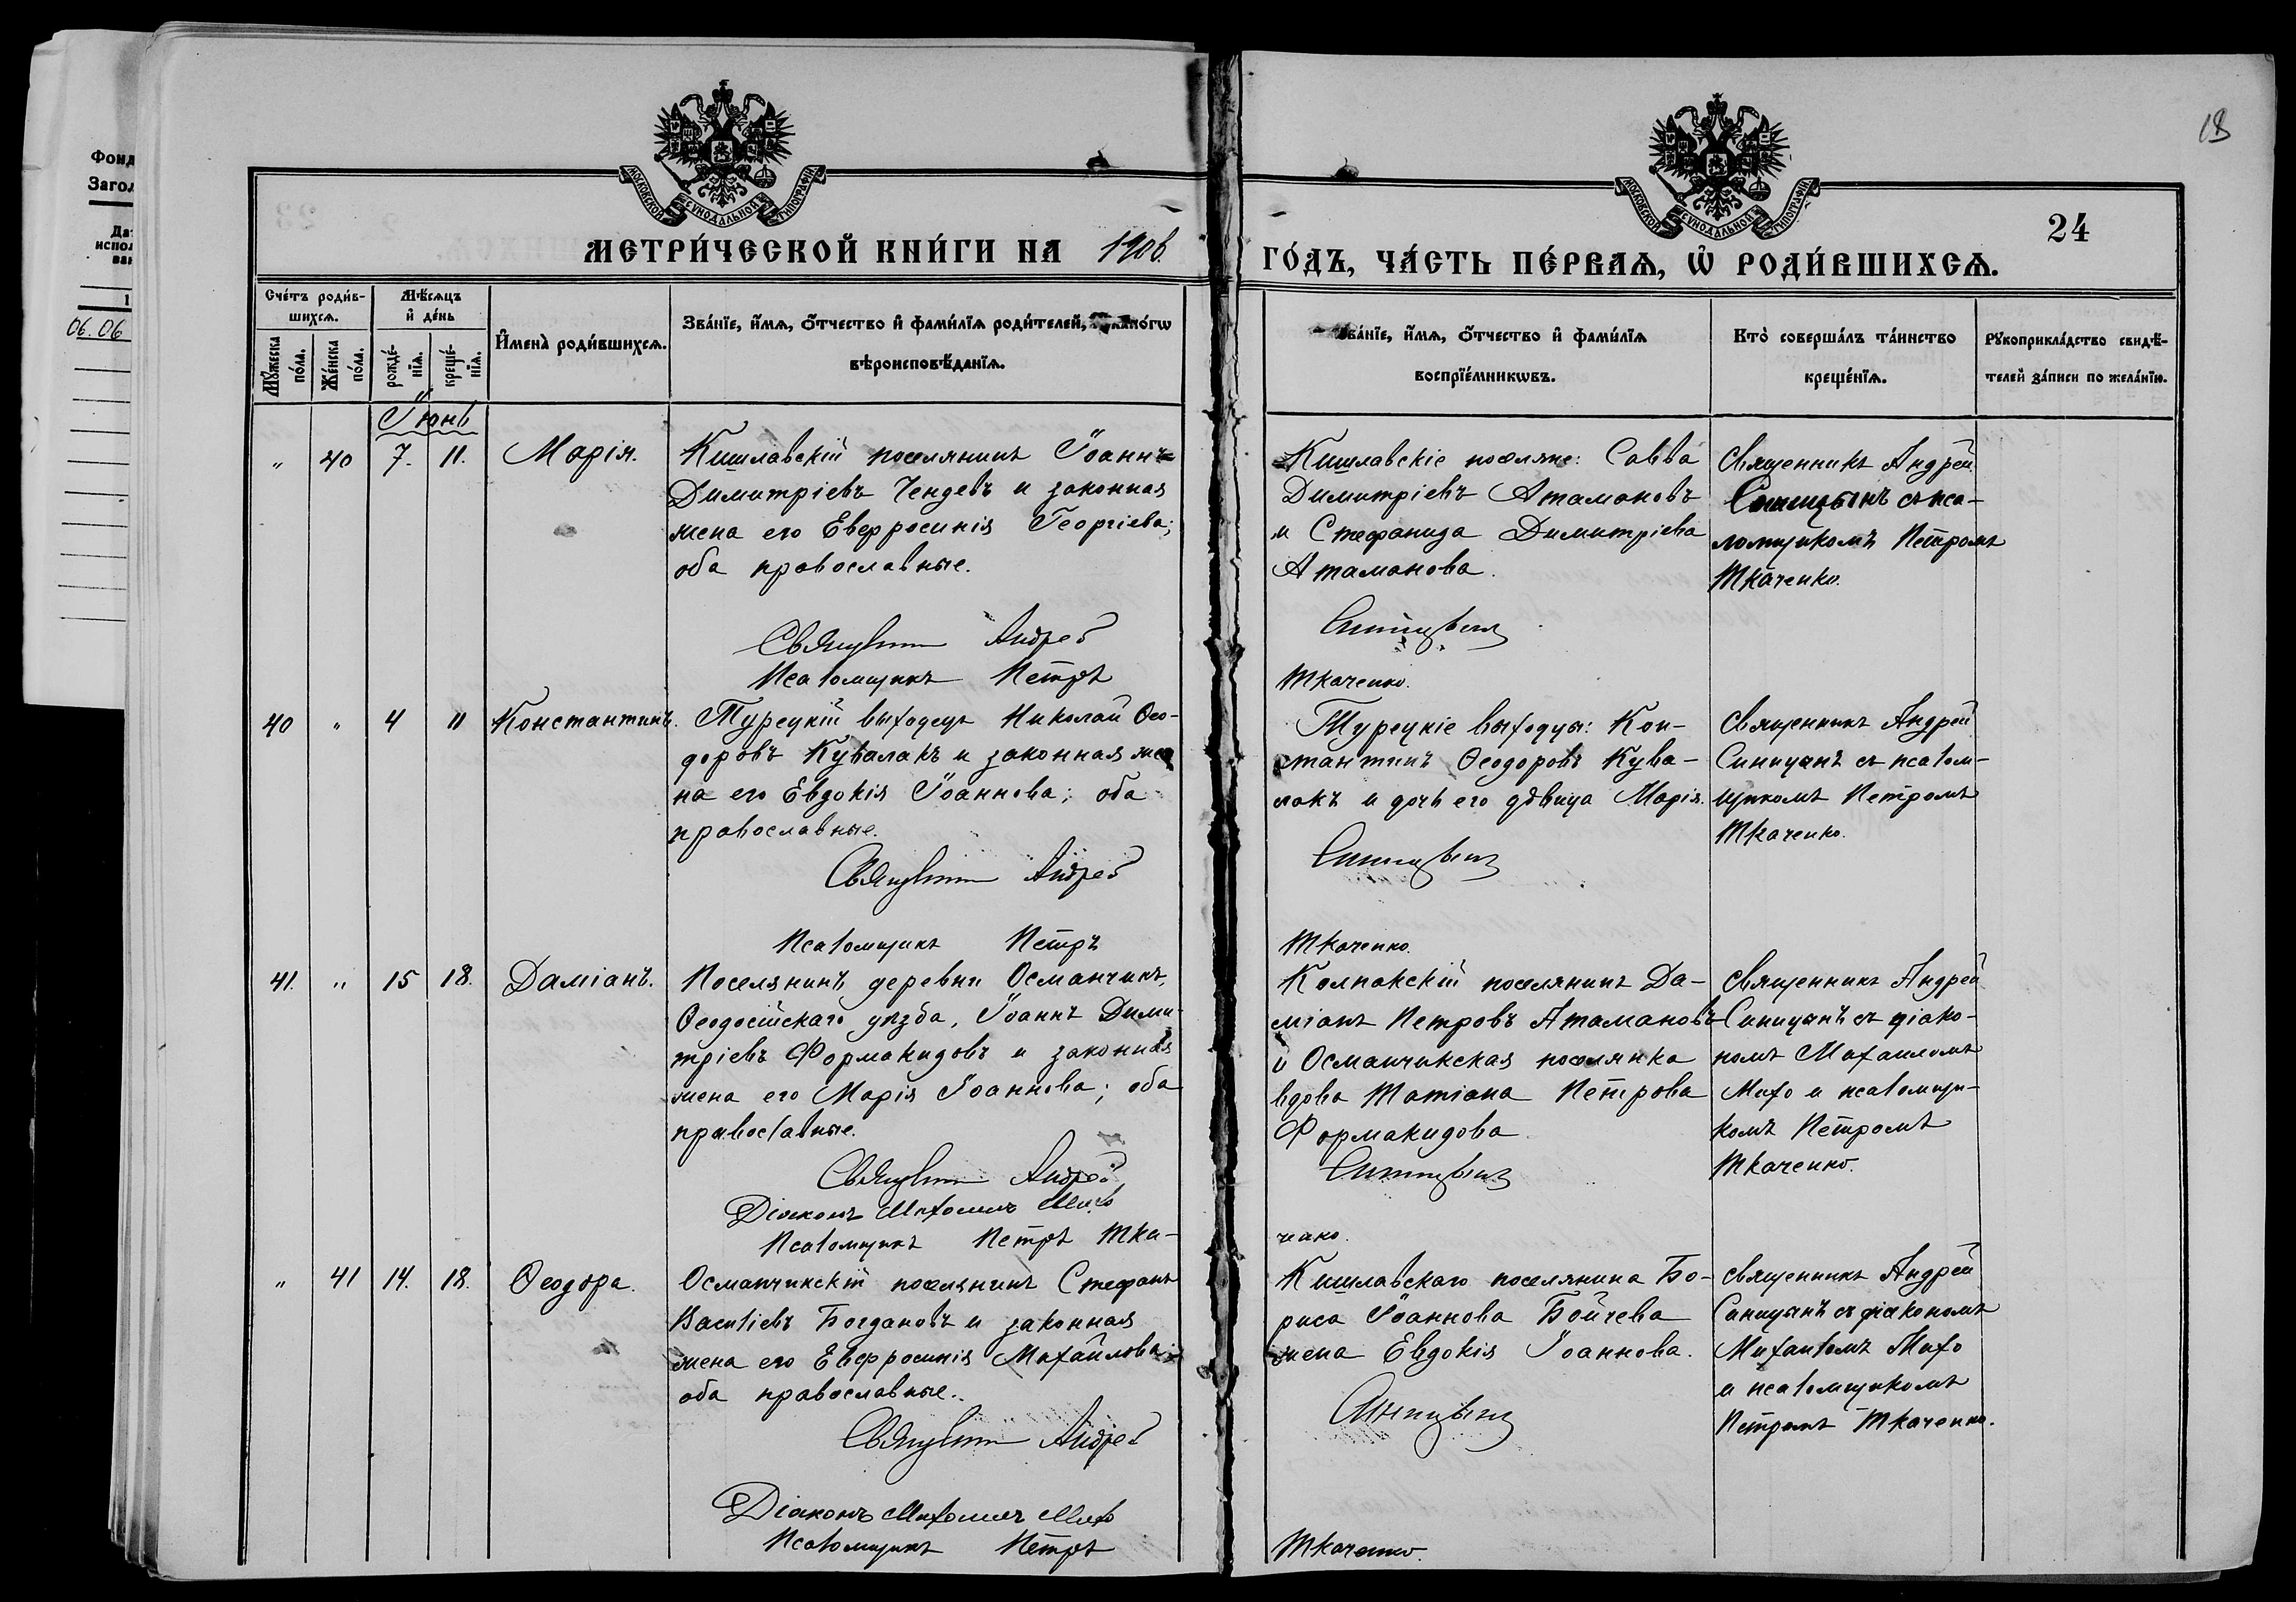 Фонд
Загол
Дат
испол
ван
1
06.06
18
МОСКОВСКОЙ СѴНОДАЛЬНОЙ ТИПОГРАФІИ
МОСКОВСКОЙ СѴНОДАЛЬНОЙ ТИПОГРАФІИ
24
МЕТРИ́ЧЕСКОЙ КНИ́ГИ НА 1906
ГО́ДЪ, ЧА́СТЬ ПЕ́РВАѦ, Ѡ҆ РОДИ́ВШИХСѦ.
Сче́тъ роди́в-
шихсѧ.
Мѣ́сѧцъ
и҆ де́нь
Мꙋ́жеска
по́ла.
Же́нска
по́ла.
рожде́-
нїѧ.
креще́-
нїѧ.
И҆мена̀ роди́вшихсѧ.
Зва́нїе, и҆́мѧ, ѻ҆́тчество и҆ фами́лїѧ роди́телей,
вѣроисповѣ́данїѧ.
Зва́нїе, и҆́мѧ, ѻ҆́тчество и҆ фами́лїѧ
воспрїе́мникѡвъ.
Кто̀ соверша́лъ та́инство
креще́нїѧ.
Рꙋкоприкла́дство свидѣ́-
телей за́писи по жела́нїю.
Іюнь
" 40 7. 11. Марія.
Кишлавскій поселянинъ Іоаннъ
Димитріевъ Чендевъ и законная
жена его Евфросинія Георгіева;
оба православные.
Священникъ Андрей
Псаломщикъ Петръ
Кишлавскіе поселяне: Савва
Димитріевъ Атамановъ
и Стефанида Димитріева
Атаманова.
Синицынъ
Ткаченко.
Священникъ Андрей
Синицынъ съ пса-
ломщикомъ Петромъ
Ткаченко.
40 " 4 11 Константинъ.
Турецкій выходецъ Николай Ѳео-
доровъ Кувалакъ и законная же
на его Евдокія Іоаннова; оба
православные.
Священникъ Андрей
Псаломщикъ Петръ
Турецкіе выходцы: Кон-
стантинъ Ѳеодоровъ Кува-
лакъ и дочь его дѣвица Марія.
Синицынъ
Ткаченко.
Священникъ Андрей
Синицынъ съ псалом-
щикомъ Петромъ
Ткаченко.
41. " 15 18. Даміанъ.
Поселянинъ деревни Османчикъ,
Ѳеодосійскаго уѣзда, Іоаннъ Дими-
тріевъ Формакидовъ и законная
жена его Марія Іоаннова; оба
православные.
Священникъ Андрей
Діаконъ Михаилъ Михо
Псаломщикъ Петръ Тка-
Колпакскій поселянинъ Да-
міанъ Петровъ Атамановъ
и Османчикская поселянка
вдова Татіана Петрова
Формакидова
Синицынъ
ченко.
Священникъ Андрей
Синицынъ съ діако-
номъ Михаиломъ
Михо и псаломщи-
комъ Петромъ
Ткаченко.
" 41 14. 18. Ѳеодора.
Османчикскій поселянинъ Стефанъ
Василіевъ Богдановъ и законная
жена его Евфросинія Михайлова;
оба православные.
Священникъ Андрей
Діаконъ Михаилъ Михо
Псаломщикъ Петръ
Кишлавскаго поселянина Бо-
риса Іоаннова Бойчева
жена Евдокія Іоаннова.
Синицынъ
Ткаченко.
Священникъ Андрей
Синицынъ съ діакономъ
Михаиломъ Михо
и псаломщикомъ
Петромъ Ткаченко.